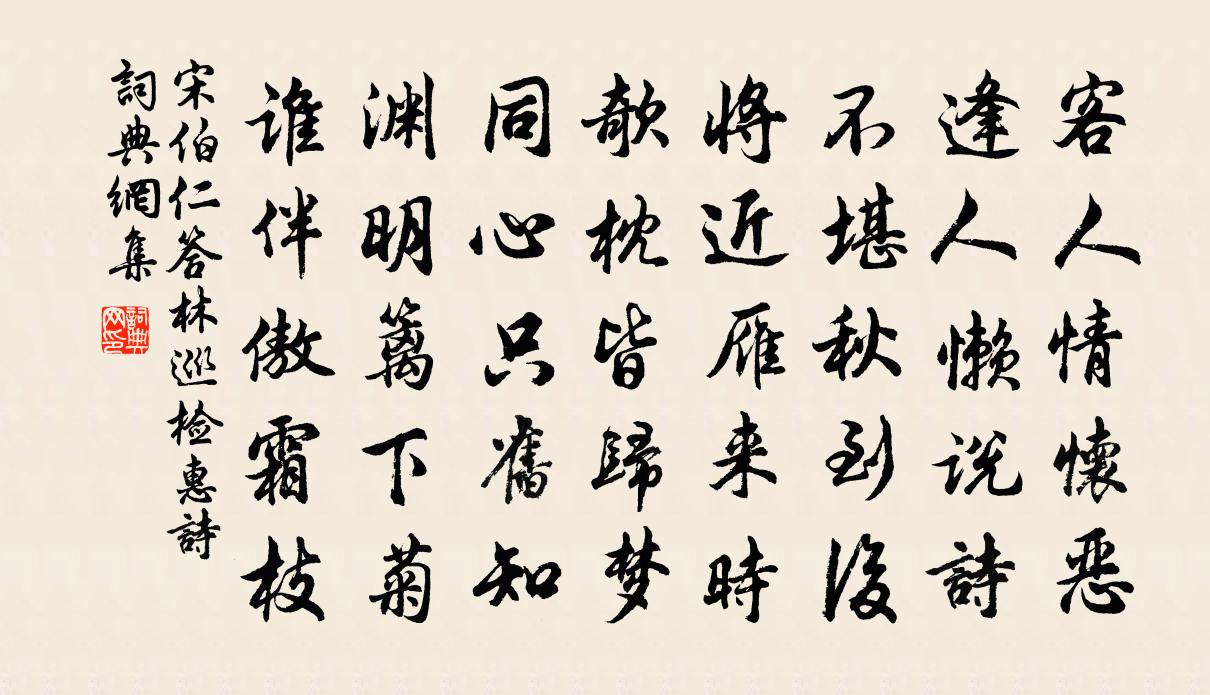 客人情懷恶
逢人懶说詩
不堪秋到後
将近雁来時
欹枕皆歸梦
同心只舊知
渊明篱下菊
谁伴傲霜枝
宋伯仁答林巡检惠詩
詞典網集
詞典网印